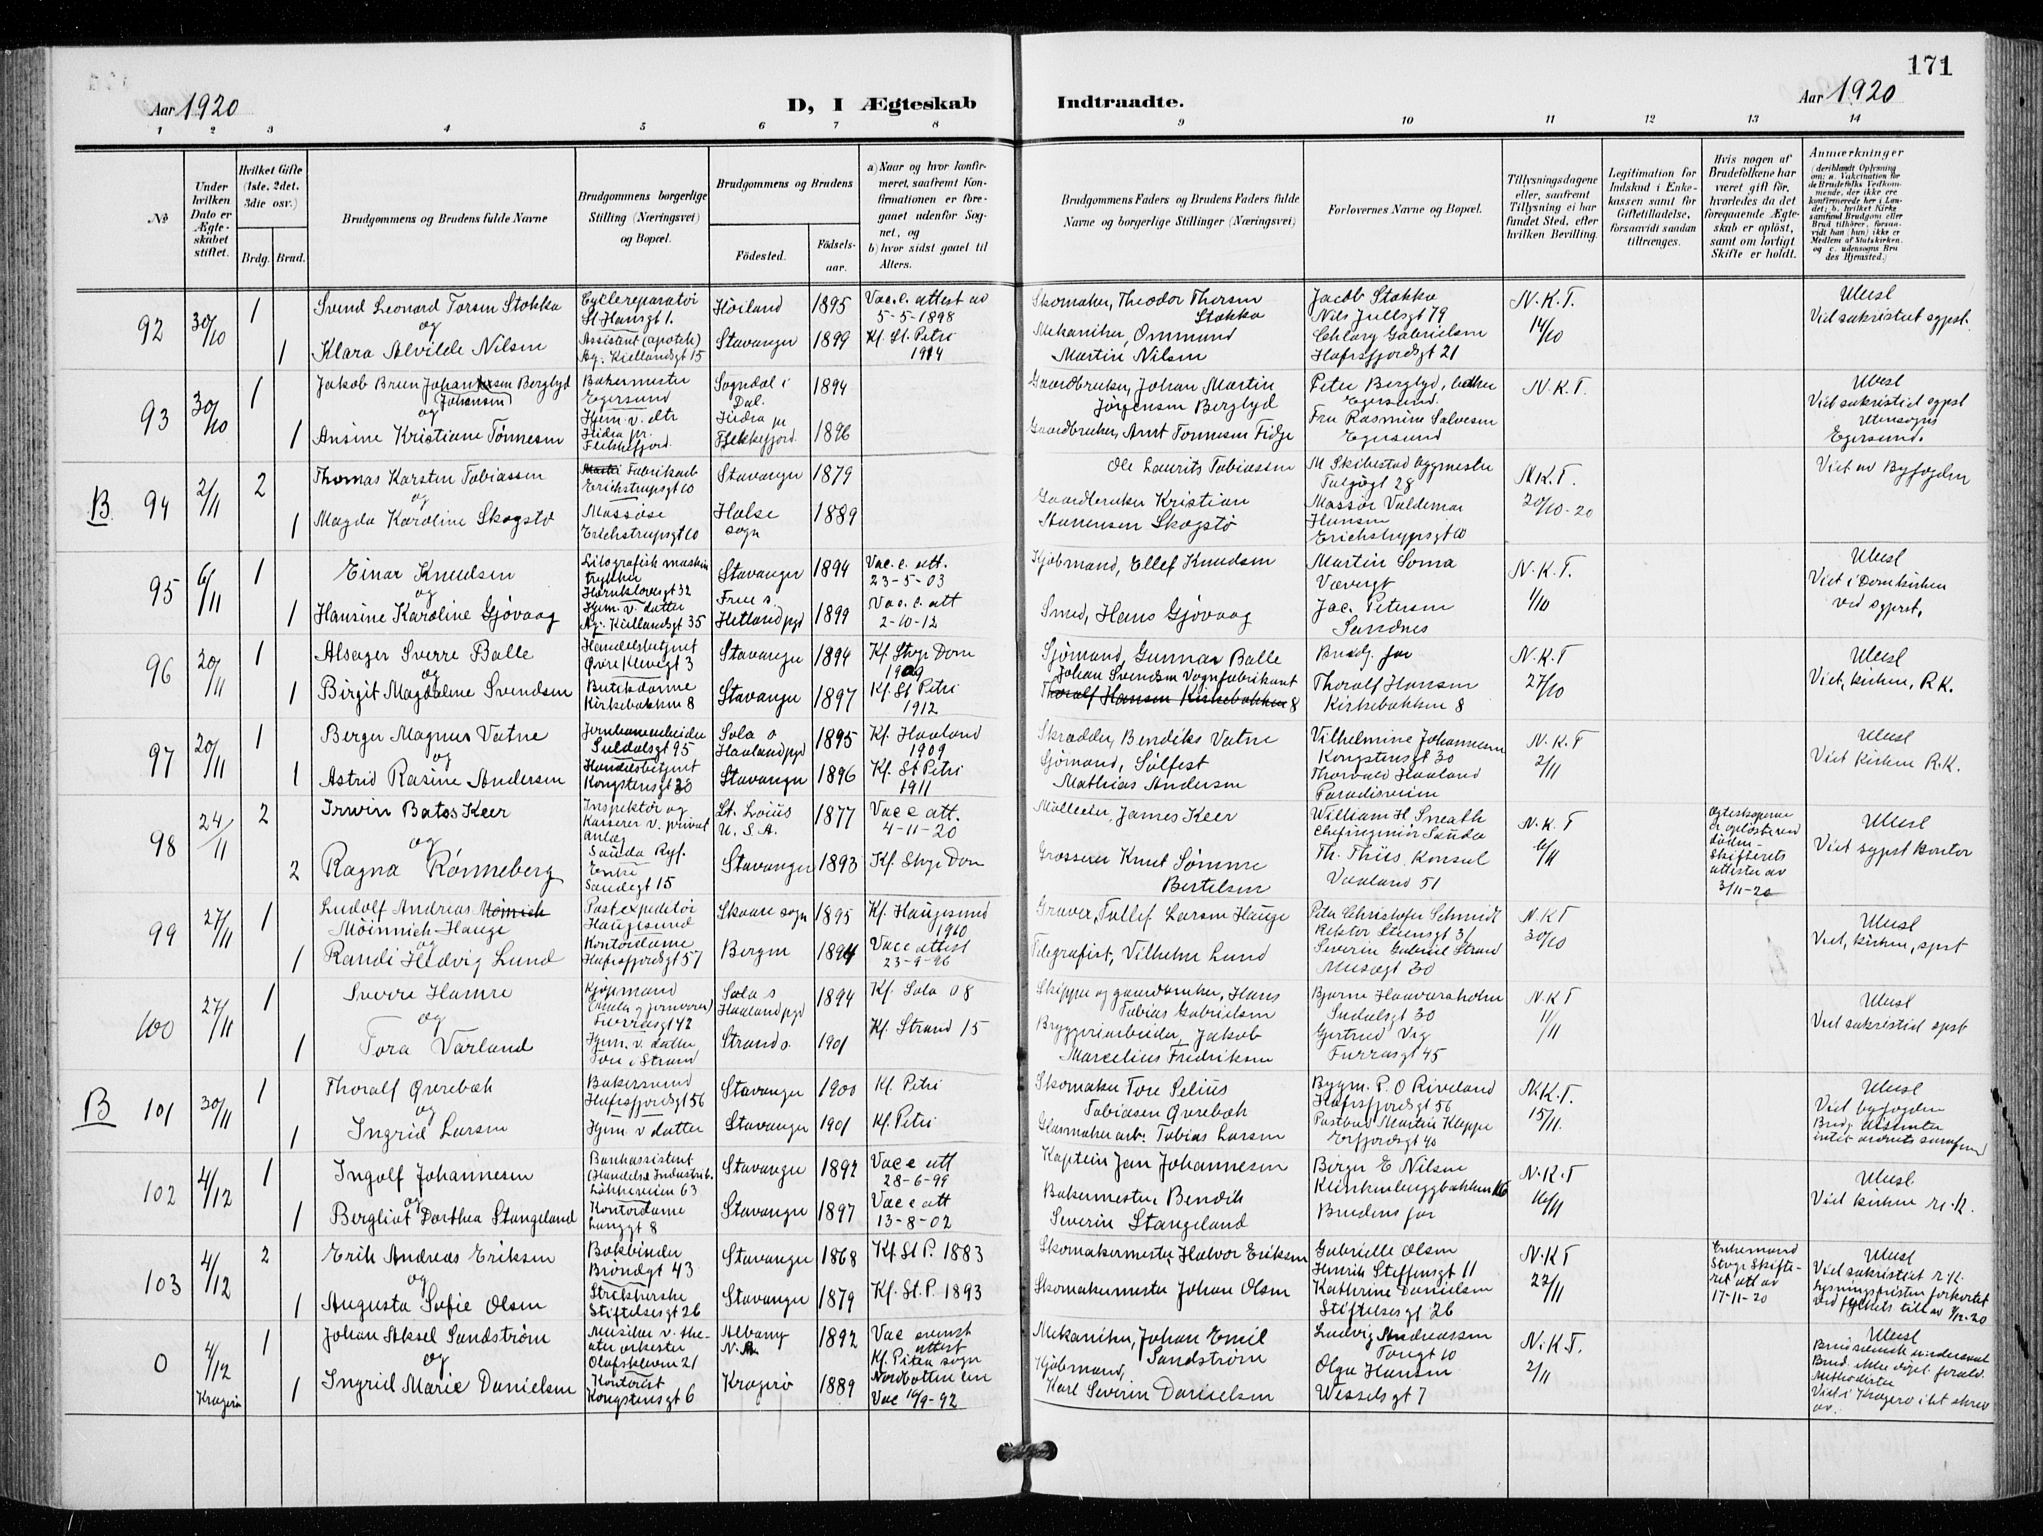 171
Aar 1920
D, I Ægteskab Indtraadte.
Aar 1920
1 2 3 4 5 6 7 8 9 10 11 12 13 14
No
Under hvilken Dato er Ægteskabet stiftet.
Hvilket Gifte (1ste, 2det, 3die osv.)
Brdg. Brud.
Brudgommens og Brudens fulde Navne
Brudgommens borgerlige Stilling (Næringsvei) og Bopæl.
Brudgommens og Brudens
Fødested.
Fødselsaar.
a) Naar og hvor konfirmeret, saafremt Konfirmationen er foregaaet udenfor Sognet, og
b) hvor sidst gaaet til Alters.
Brudgommens Faders og Brudens Faders fulde Navne og borgerlige Stillinger (Næringsvei)
Forlovernes Navne og Bopæl.
Tillysningsdagene eller, saafremt Tillysning ei har fundet Sted, efter hvilken Bevilling.
Legitimation for Indskud i Enkekassen samt for Giftetilladelse, forsaavidt saadan tiltrænges.
Hvis nogen af Brudefolkene har været gift før, hvorledes da det foregaaende Ægteskab er opløst, samt om lovligt Skifte er holdt.
Anmerkninger
92 30/10 1
Svend Leonard Torsen Stokka
og
1 Klara Alvilde Nilsen
Cyclereparatør
St Hansgt 1.
Assistent (apotek)
Ag. Kiellandsgt 15
Høiland 1895
Stavanger 1899
Vac. c. attest av
5-5-1898
Kf. St. Petri
1914
Skomaker, Theodor Thorsen
Stokka
Mekaniker, Ommund
Martin Nilsen
Jacob Stokka
Nils Juelsgt 79
Gabrielsen
Hafrsfjordsgt 21
N.K.T.
14/10
Utlest
Viet sakristiet sgpst.
93 30/10 1
Jakob Bruun Johannesen Berglyd
(Johansen)
og
1 Ansine Kristiane Tønnesen
Bakermester
Egersund
Hjem. v. dtr
Hidra pr.
Flekkefjord.
Sogndal i
Dal. 1894
Hidra pr
Flekkefjord. 1896
Gaardbruker, Johan Martin
Jørgensen Berglyd
Gaardbruker, Arnt Tonnesen Fidje
Peter Berglyd,
Egersund.
Fru Rasmine Salvesen
Egersund
N.K.T.
Utlest
Viet sakristiet sgpst
Utensogns
Egersund.
B. 94 2/11 2
Thomas Karsten Tobiassen
og
1 Magda Karoline Skogstø
Fabrikarb
Erichstrupsgt 10
Massøse
Erichstrupsgt 10
Stavanger 1879
Halse
sogn 1889
Ole Laurits Tobiassen
Gaardbruker Kristian
Skogstø
M Skibestad bygmester
28
Massør Valdemar
Hansen
Erichstrupsgt 10
N.K.T.
20/10-20
Viet av Byfogden
95 6/11 1
Einar Knudsen
og
1 Hansine Karoline Gjøvaag
Litografisk maskin
trykker
Harniklovesgt 32
Hjem. v. datter
Ag. Kiellandsgt 35
Stavanger 1894
Frue s.
Hetland pgd 1899
Vac. c. att.
23-5-03
Vac. c. att
2-10-12
Kjøbmand, Ellef Knudsen
Smed, Hans Gjøvaag
Martin Soma
Vævergt
Jac. Petersen
Sandnes
N.K.T.
1/10
Utlest
Viet i Domkirken
ved sgprst.
96 20/11 1
Alsager Sverre Balle
og
1 Birgit Magdalene Svendsen
Handelsbetjent
Øvre Klevegt 3
Butikdame
Kirkebakken 8
Stavanger 1894
Stavanger 1897
Kf Stvgr Dom
1909
Kf. St Petri
1912
Sjømand, Gunnar Balle
Johan Svendsen Vognfabrikant
Thoralf Hansen Kirkebakken 8
Brudg. far
Thoralf Hansen
Kirkebakken 8
N.K.T
27/10
Utlest
Viet, kirken, R.K.
97 20/11 1
Berger Magnus Vatne
og
1 Astrid Rasine Andersen
Jernbanearbeider
Suldalsgt 95
Handelsbetjent
Kongstensgt 30
Sola s
Haaland pgd 1895
Stavanger 1896
Kf. Haaland
1909
Kf. St Petri
1911
Skrædder, Bendiks Vatne
Sjømand, Sølfest
Mathias Andersen
Vilhelmine Johannesen
Kongstensgt 30
Thorvald Haaland
Paradisveien
N.K.T
2/11
Utlest
Viet kirken R.K.
98 24/11 2
Irwin Bates Keer
og
2 Ragna Rønneberg
Inspektør og
Kasserer v. privat
anlæg
Sauda Ryf.
Enke
Sandegt 15
St. Loius
U.S.A. 1877
Stavanger 1893
Vac c att.
4-11-20
Kf. Stvgr Dom
Mølleeier, James Keer
Grosserer Knut Sømme
Bertelsen
William H Sneath
Chefingeniør Sauda
Th. Thiis, Konsul
Vaaland 51
N.K.T
6/11
Ægteskaperne
er opløst ved
døden
Skifterets
attester av
3/11-20
Utlest
Viet sgpst kontor
99 27/11 1
Ludolf Andreas Mønnich
Mönnich-Hauge
og
1 Randi Hedvig Lund
Postexpeditør
Haugesund
Kontordame
Hafrsfjordsgt 57
Skaare sogn 1895
Bergen 1894
Kf. Haugesund
1910
Vac c attest
23-9-96
Graver, Tollef Larsen Hauge
Telegrafist, Vilhelm Lund
Peter Christofer Schmidt
Rektor Steensgt 31
Severin Gabriel Strand
Musægt 30
N.K.T
30/10
Utlest
Viet, kirken, sprst
100 27/11 1
Sverre Hamre
og
1 Tora Varland
Kjøpmand
Furrasgt 42
Hjem. v. datter
Tou i Strand
Sola s
Haaland pgd 1894
Strand s. 1901
Kf. Sola 08
Kf. Strand 15
Skipper og gaardbruker, Hans
Tobias Gabrielsen
Bryggeriarbeider, Jakob
Marcelius Fredriksen
Bjarne Haavarsholm
Suldalsgt 30
Gertrud Vig
Furrasgt 45
N.K.T
11/11
Utlest
Viet sakristiet sprst
B 101 30/11 1
Thoralf Qverebæk
og
1 Ingrid Larsen
Bakersvend
Hafrsfjordsgt 56
Hjem. v datter
Stavanger 1900
Stavanger 1901
Kf. Petri
Kf. Petri
Skomaker Tore Selius
Tobiasen Qverebæk
Glasmakerarb. Tobias Larsen
Bygm. P. O Riveland
Hafrsfjordsgt 56
Postbud Martin Kleppe
Erfjordsgt 40
N.K.T.
15/11.
Utlest
Viet byfogden
102 4/12 1
Ingolf Johannesen
og
1 Bergliot Dorthea Stangeland
Bankassistent
Løkkeveien 63
Kontordame
Langgt 8
Stavanger 1892
Stavanger 1897
Vac c att
28-6-99
Vac c att
13-8-02
Kaptein Jan Johannesen
Bakermester Bendik
Severin Stangeland
Birger E Nilsen
Klinkenbergbakken 16
Brudens far
N.K.T
16/11
Utlest
Viet kirken r.k.
103 4/12 2
Erik Andreas Eriksen
og
1 Augusta Sofie Olsen
Bokbinder
Brøndgt 43
Strikkerske
Stiftelsesgt 26
Stavanger 1868
Stavanger 1879
Kf. St P. 1883
Kf. St. P. 1893
Skomakermester, Halvor Eriksen
Skomakermester Johan Olsen
Gabrielle Olsen
Henrik Steffensgt 11
Kathrine Danielsen
Stiftelsesgt 26
N.K.T
22/11
Enkemand
Stvgr Skifteret att av
17-11-20
Utlest
Viet sakristiet r.k.
Lysningsfristen forkortet
ved fylkets till av 4/12-20
0 4/12 Kragerø 1
Johan Aksel Sandstrøm
og
1 Ingrid Marie Danielsen
Musiker v. theater orkester
Olafskleven 21
Kontorist
Kongstensgt 6
Albany
N.A. 1892
Kragerø 1889
Vac svensk
attest
Kf. Pitea sogn
Nordbotten len
Vac 10/9-92
Mekaniker, Johan Emil
Sandstrøm
Kjøbmand,
Karl Severin Danielsen
Ludvig Andreassen
Tougt 10
Olga Hansen
Wesselsgt 7
N.K.T.
2/11
Utlest
Brud. ikke døpt
Methodister
Viet i Kragerø